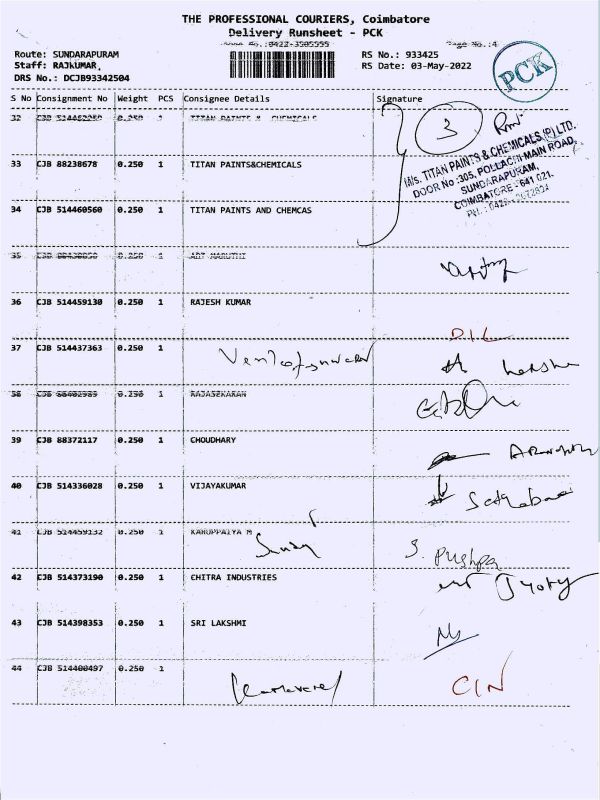 THE PROFESSIONAL COURIERS, Coimbatore
Delivery Runsheet - PCK
Phone No.:0422-3505555 Page No.:4
Route: SUNDARAPURAM RS No.: 933425
Staff: RAJKUMAR. RS Date: 03-May-2022
DRS No.: DCJB93342504
PCK
S No Consignment No Weight PCS Consignee Details Signature
32 CJB 0.250 1 TITAN PAINTS & CHEMICALS 3
M/s. TITAN PAINTS & CHEMICALS (P) LTD.
DOOR No :305, POLLACHI MAIN ROAD,
SUNDARAPURAM,
COIMBATORE - 641 021.
33 CJB 88238678 0.250 1 TITAN PAINTS&CHEMICALS
34 CJB 514460560 0.250 1 TITAN PAINTS AND CHEMCAS
35 CJB 0.250 1 ART MARUTHI
36 CJB 514459130 0.250 1 RAJESH KUMAR
D.I.L
37 CJB 514437363 0.250 1
38 CJB 0.250 1 RAJASEKARAN
39 CJB 88372117 0.250 1 CHOUDHARY
40 CJB 514336028 0.250 1 VIJAYAKUMAR
41 CJB 514459132 0.250 1 KARUPPAIYA M S. Pushpa
42 CJB 514373190 0.250 1 CHITRA INDUSTRIES Jyoty
43 CJB 514398353 0.250 1 SRI LAKSHMI
44 CJB 514400497 0.250 1 CIN